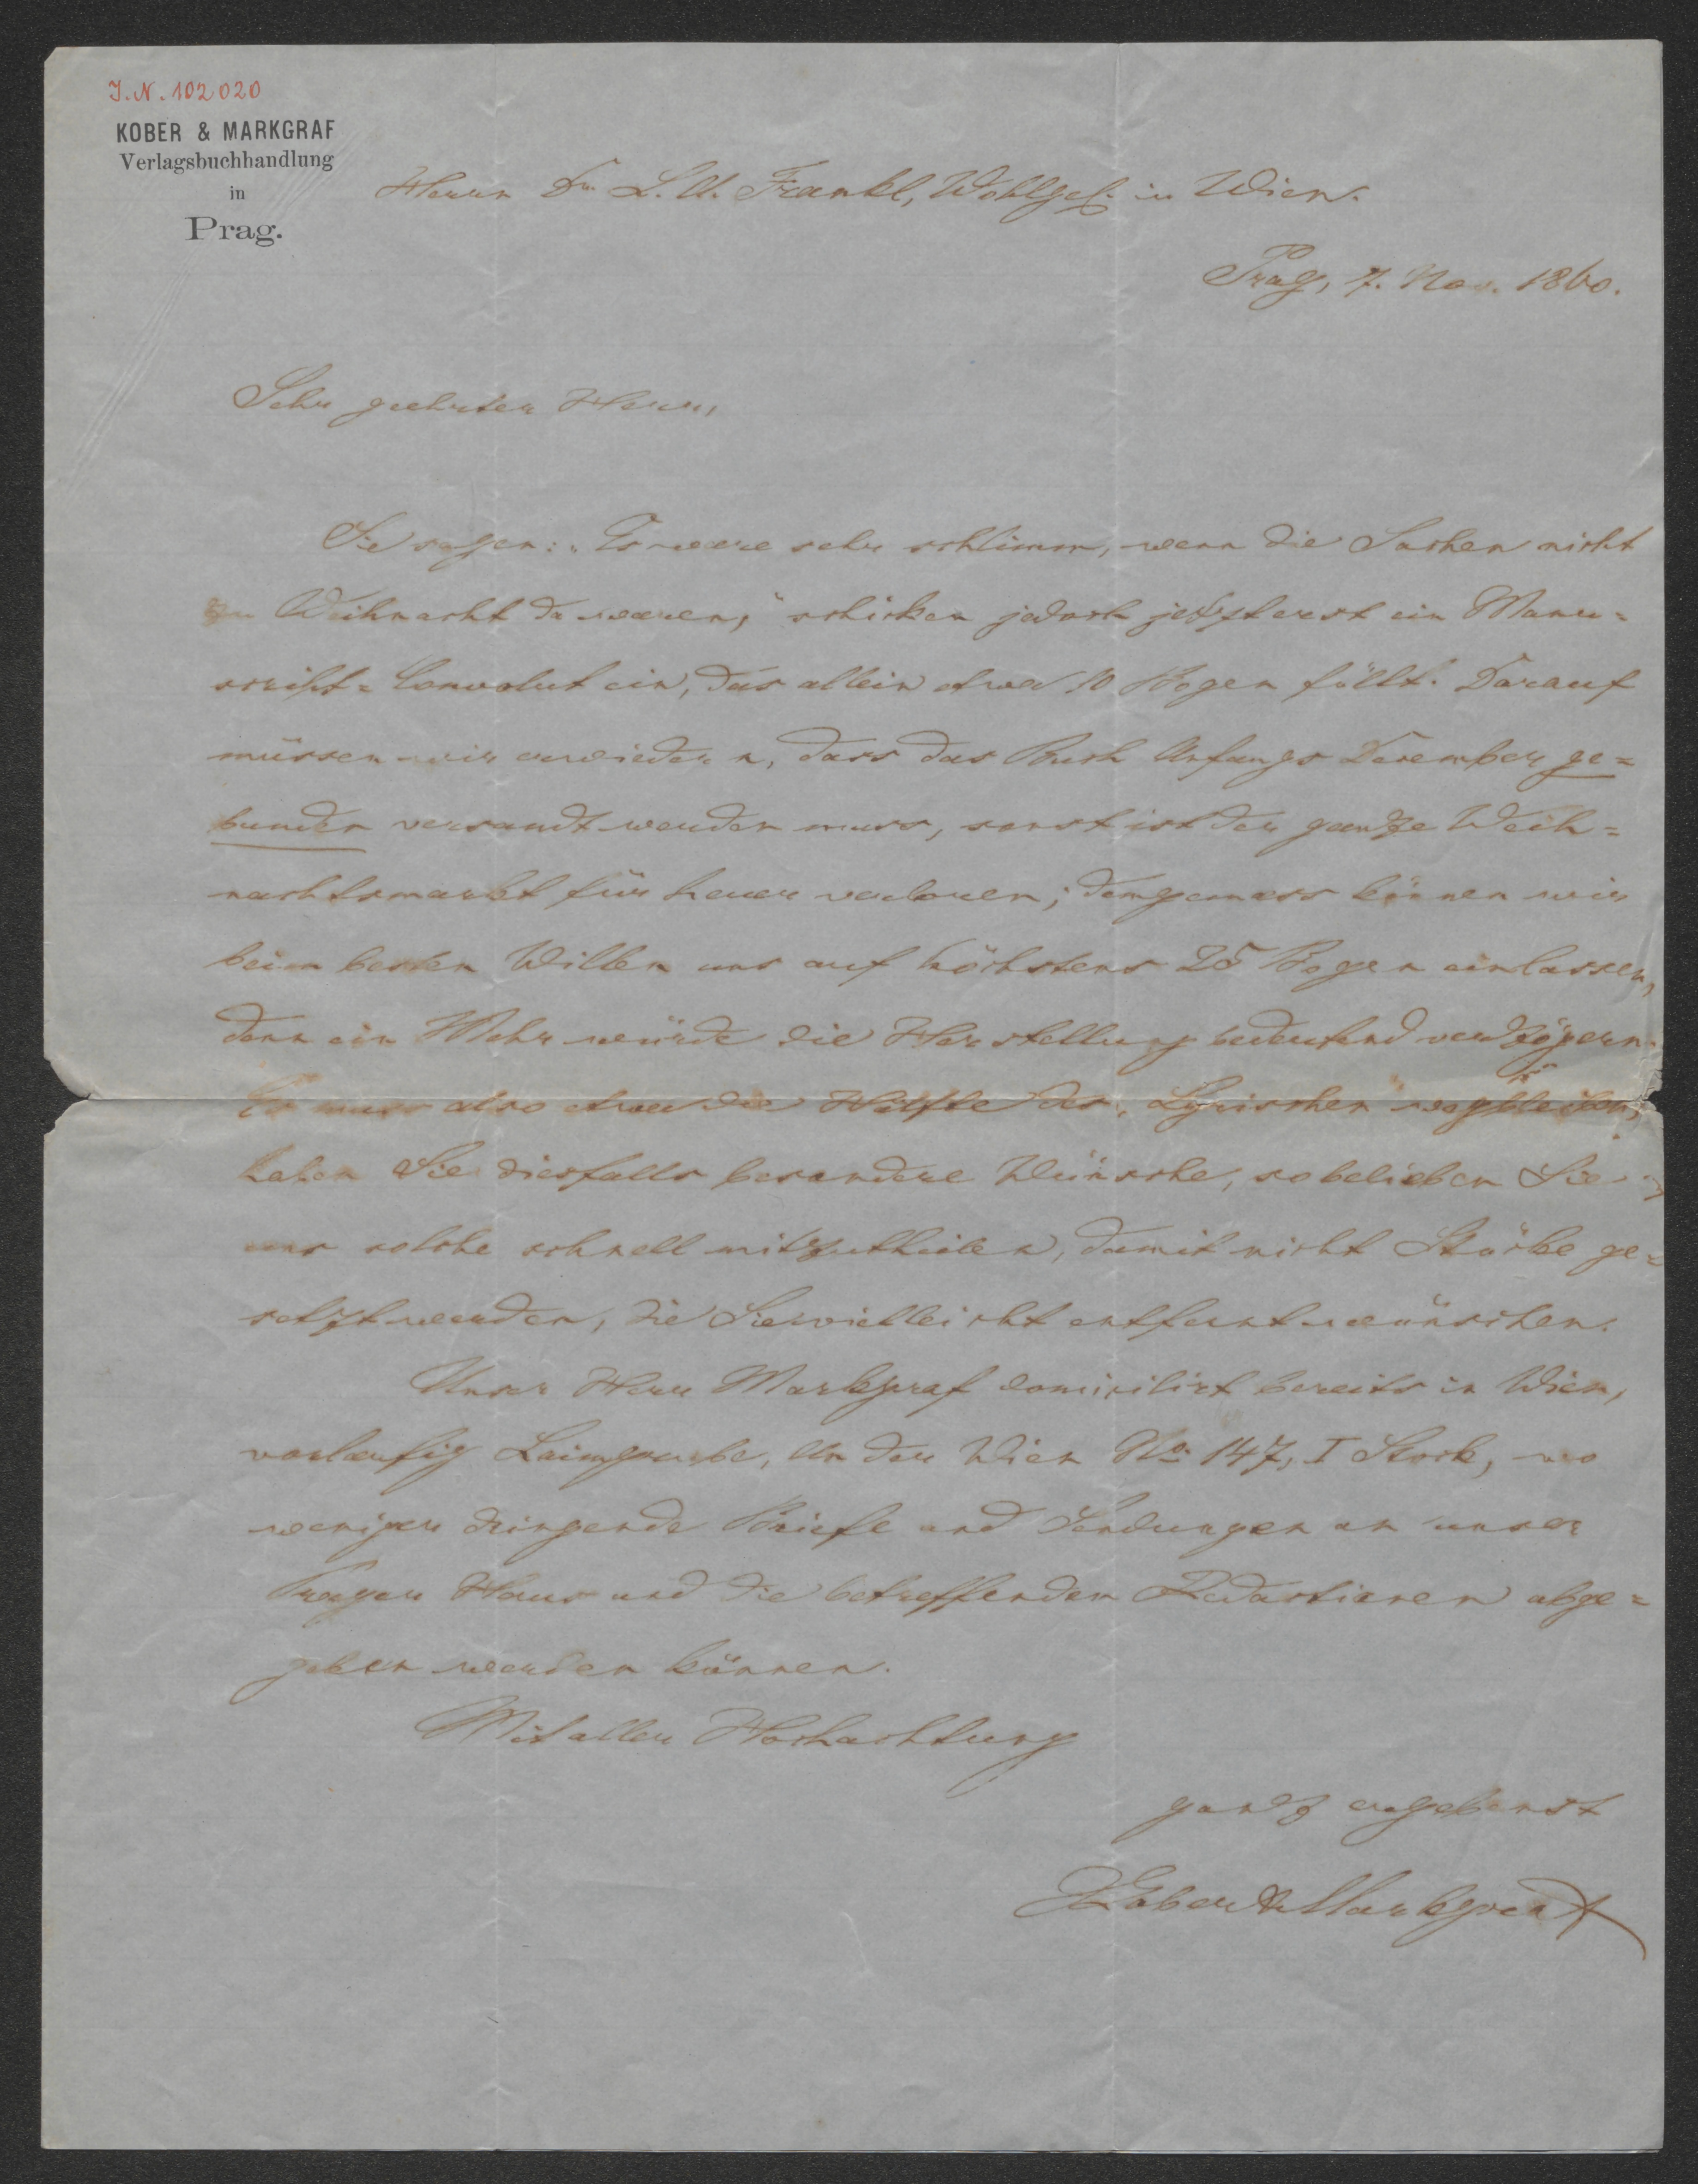 I.N. 102020
KOBER & MARKGRAF
Verlagsbuchhandlung
in
Prag.
Herrn Dr. L. A. Frankl, Wohlgeb. in Wien.
Prag, 7. Nov. 1860.
Sehr geehrter Herr,
Sie sagen: „Es wäre sehr schlimm, wenn die Sachen nicht
zu Weihnacht da wären," schicken jedoch jetzt erst ein Manu=
script=Convolut ein, das allein etwa 10 Bogen füllt. Darauf
müssen wir erwiedern, dass das Buch Anfangs Dezember ge=
bunden versandt werden muss, sonst ist der ganze Weih=
nachtsmarkt für heuer verloren; demgemäss können wir
beim besten Willen uns auf höchstens 25 Bogen einlassen,
denn ein Mehr würde die Herstellung bedeutend verzögern.
Es muss also etwa die Hälfte des „Lyrischen" wegbleiben,
haben Sie diesfalls besondere Wünsche, so belieben Sie
uns solche schnell mitzutheilen, damit nicht Stücke ge=
setzt werden, die Sie vielleicht entfernt wünschen.
Unser Herr Markgraf domicilirt bereits in Wien,
vorläufig Laimgrube, An der Wien No. 147, I Stock, wo
weniger dringende Briefe und Sendungen an unser
Prager Haus und die betreffenden Redactionen abge=
geben werden können.
Mit aller Hochachtung
ganz ergebenst
Kober & Markgraf